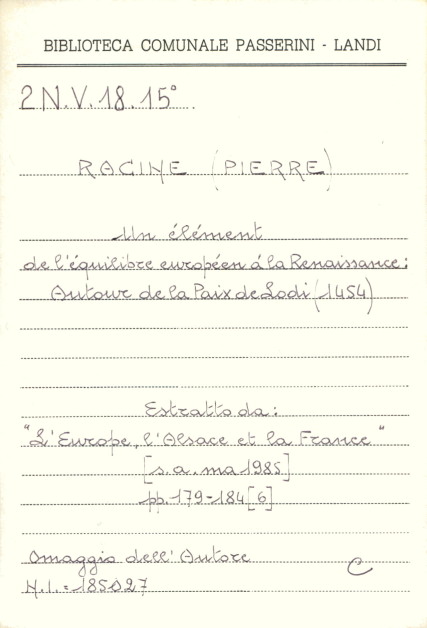 BIBLIOTECA COMUNALE PASSERINI - LANDI
2 N.V.18.15°
RACINE (PIERRE)
Un élément
de l'équilibre européen á la Renaissance:
Autour de la Paix de Lodi (1454)
Estratto da:
"L'Europe, l'Alsace et la France"
[s.a. ma 1985]
pp. 179-184 [6]
Omaggio dell'Autore
C
N.I.=185027